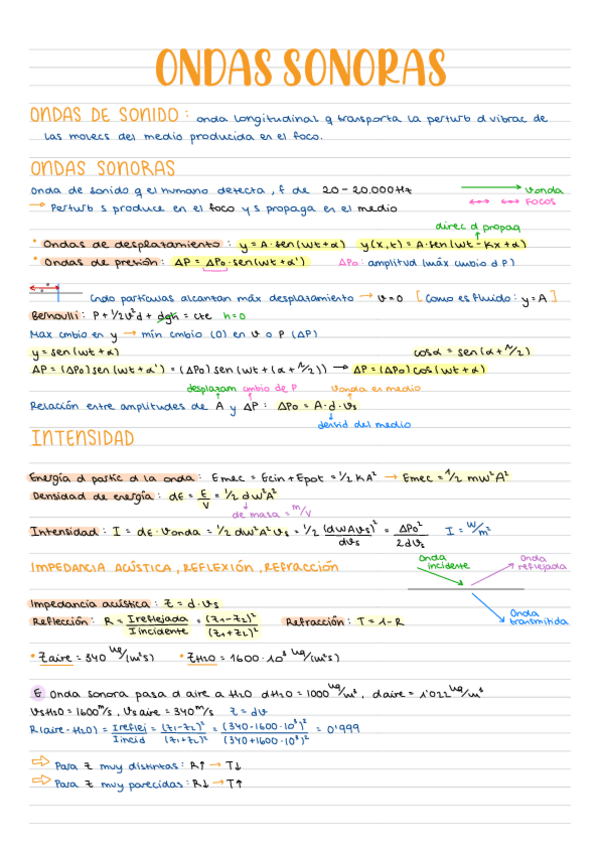 ONDAS SONORAS
ONDAS DE SONIDO: onda longitudinal q transporta la perturb d vibrac de
las molecs del medio producida en el foco.
ONDAS SONORAS
Onda de sonido q el humano detecta, f de 20-20.000Hz
vonda
FOCOS
→ Perturb s produce en el foco y s propaga en el medio
direc d propag
* Ondas de desplazamiento: y=A·sen(wt+α) y(x,t)=A·sen(wt-kx+α)
* Ondas de presión: ΔP=ΔPo·sen(wt+α') ΔPo: amplitud (máx cmbio d P)
Cndo partículas alcanzan máx desplazamiento → v=0 [Como es fluido: y=A]
Bernoulli: P+½v²d+dgh=cte h=0
Max cmbio en y → mín cmbio (0) en v o P (ΔP)
y=sen(wt+α) cosα=sen(α+π/2)
ΔP=(ΔPo)sen(wt+α')=(ΔPo)sen(wt+(α+π/2)) → ΔP=(ΔPo)cos(wt+α)
desplazam cmbio de P vonda en medio
Relación entre amplitudes de A y ΔP: ΔPo=A·d·vs
densid del medio
INTENSIDAD
Energía d partíc d la onda: Emec=Ecin+Epot=½KA² → Emec=½mw²A²
Densidad de energía: dE=E/V=½dw²A²
de masa=m/V
Intensidad: I=dE·vonda=½dw²A²vs=½(dwAvs)²/dvs=ΔPo²/2dvs I=W/m²
IMPEDANCIA ACÚSTICA, REFLEXIÓN, REFRACCIÓN
Onda incidente
Onda reflejada
Impedancia acústica: Z=d·vs
Onda transmitida
Reflección: R=Ireflejada/Iincidente=(Z1-Z2)²/(Z1+Z2)² Refracción: T=1-R
* Zaire=340 kg/(m²s) * ZH2O=1600·10³ kg/(m²s)
E Onda sonora pasa d aire a H2O dH2O=1000 kg/m³, daire=1'022 kg/m³
VsH2O=1600m/s, Vsaire=340m/s Z=dv
R(aire-H2O)=Ireflej/Iincid=(Z1-Z2)²/(Z1+Z2)²=(340-1600·10³)²/(340+1600·10³)²=0'999
⇒ Para Z muy distintas: R↑ → T↓
⇒ Para Z muy parecidas: R↓ → T↑